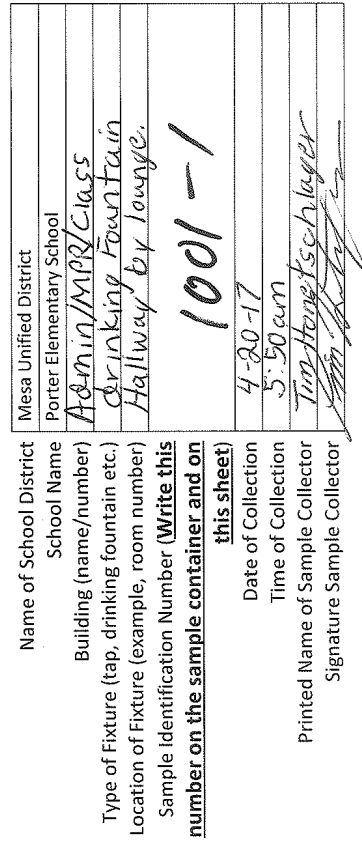 Name of School District Mesa Unified District
School Name Porter Elementary School
Building (name/number) Admin/MPR/Class
Type of Fixture (tap, drinking fountain etc.) drinking Fountain
Location of Fixture (example, room number) Hallway by lounge.
Sample Identification Number (Write this
number on the sample container and on
this sheet) 1001-1
Date of Collection 4-20-17
Time of Collection 5:50am
Printed Name of Sample Collector Tim
Signature Sample Collector